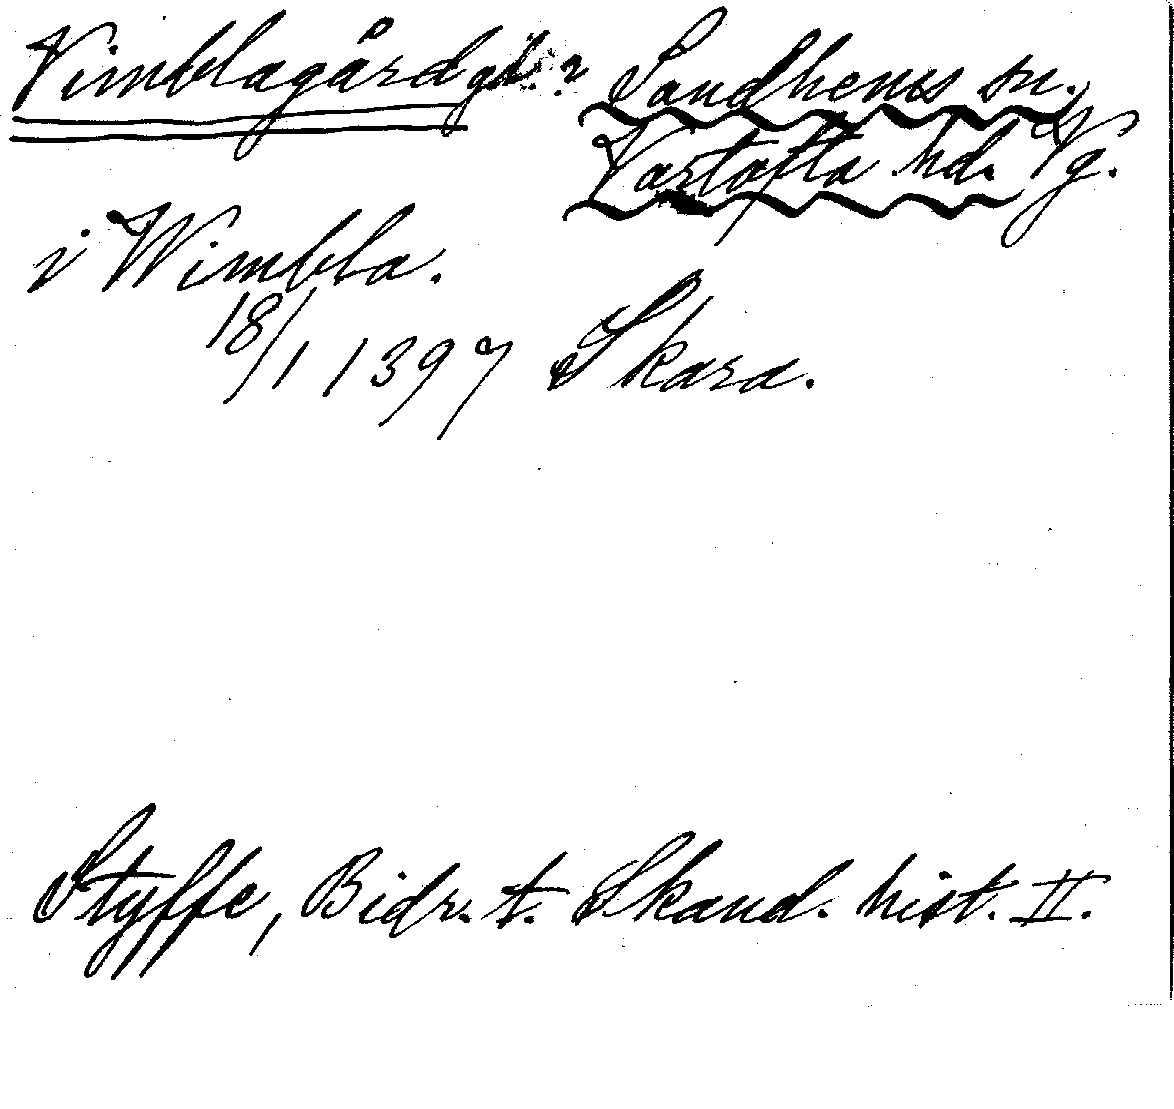 Vimblagård gd. ? Sandhems sn.
Vartofta hd. Vg.
i Wimbla.
18/1 1397 Skara.
Styffe, Bidr. t. Skand. hist. II.